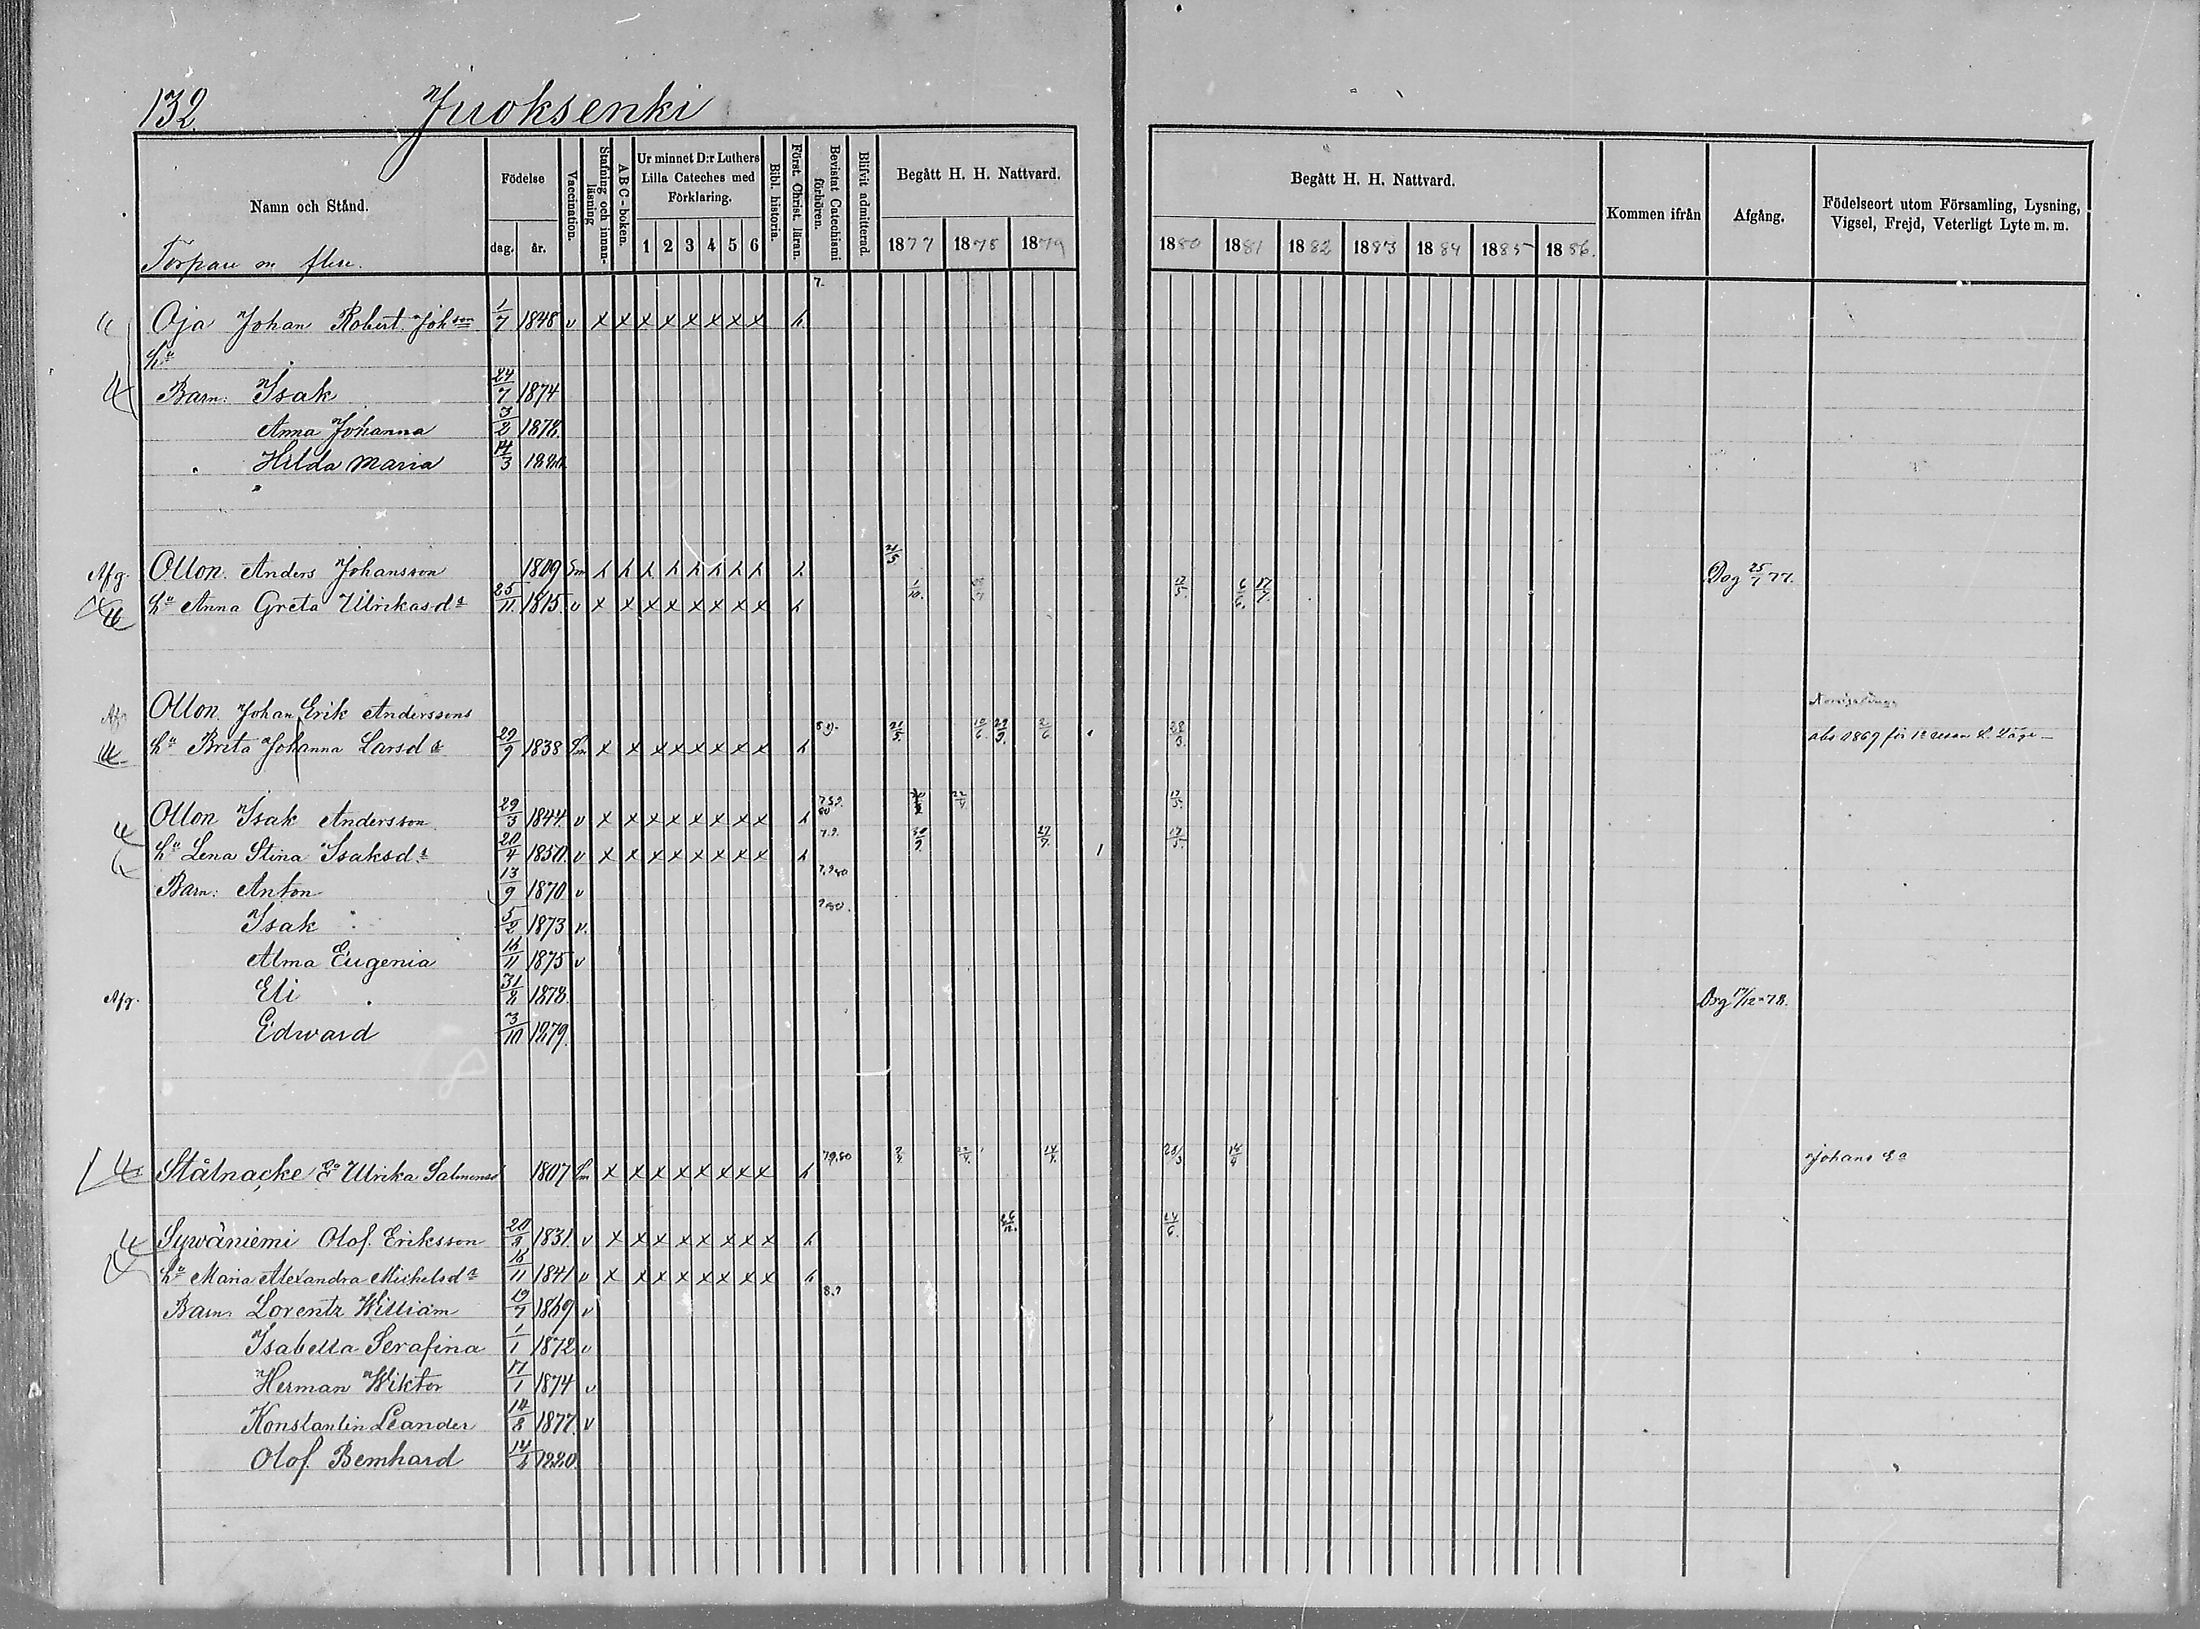 132.
Juoksenki
Namn och Stånd.
Torpare m flere.
Födelse
dag.
år.
Vaccination.
Stafning och innan-läsning
A B C - boken.
Ur minnet D:r Luthers
Lilla Cateches med
Förklaring.
1 2 3 4 5 6
Bibl. historia.
Först. Christ. läran.
Bevistat Catechismi förhören.
Blifvit admitterad.
Begått H. H. Nattvard.
1877 1878 1879
Begått H. H. Nattvard.
1880 1881 1882 1883 1884 1885 1886.
Kommen ifrån
Afgång.
Födelseort utom Församling, Lysning,
Vigsel, Frejd, Veterligt Lyte m. m.
7.
Oja Johan Robert Johson 1/7 1848 v x x x x x x x x h
hu
Barn: Isak 24/7 1874
Anna Johanna 3/2 1878
Hilda Maria 14/3 1880
Afg. Ollon. Anders Johansson 1809 Sm h h h h h h h h h 21/5 Dog 25/7 77.
hu Anna Greta Ulrikasdr 25/11 1815 v x x x x x x x x h 1/10. 17/5. 6/6. 17/7.
Afg. Ollon. Johan Erik Anderssons
hu Brita Johanna Larsdr 29/9 1838 Sm x x x x x x x x h 8.9. 21/5. 10/6. 29/9. 2/6 28/3. abs 1869 för 1a resan L. Läge
Ollon Isak Andersson 29/3 1844 v x x x x x x x x h 7.8.9. 80 22/4. 17/5.
hu Lena Stina Isaksdr 20/4 1850 v x x x x x x x x h 7.9. 30/9. 27/7. 17/5.
Barn: Anton 13/9 1870 v 7.9 80
Isak 5/2 1873 v. 9 80.
Alma Eugenia 16/11 1875 v
Afg. Eli 31/8 1878 Dog 17/12 78.
Edward 3/10 1879.
Stålnacke Ea Ulrika Salmonsd 1807 Sm x x x x x x x x h 79.80 22/4. 14/4. 28/3 18/4 Johans Ea
Sywäniemi Olof Eriksson 20/9 1831 v x x x x x x x x h 26/12. 24/6.
hu Maria Alexandra Mickelsdr 16/11 1841 v x x x x x x x x h
Barn. Lorentz William 19/7 1869 v 8.9
Isabella Serafina 1/1 1872 v
Herman Wiktor 17/1 1874 v
Konstantin Leander 14/8 1877 v
Olof Bernhard 14/4 1880.